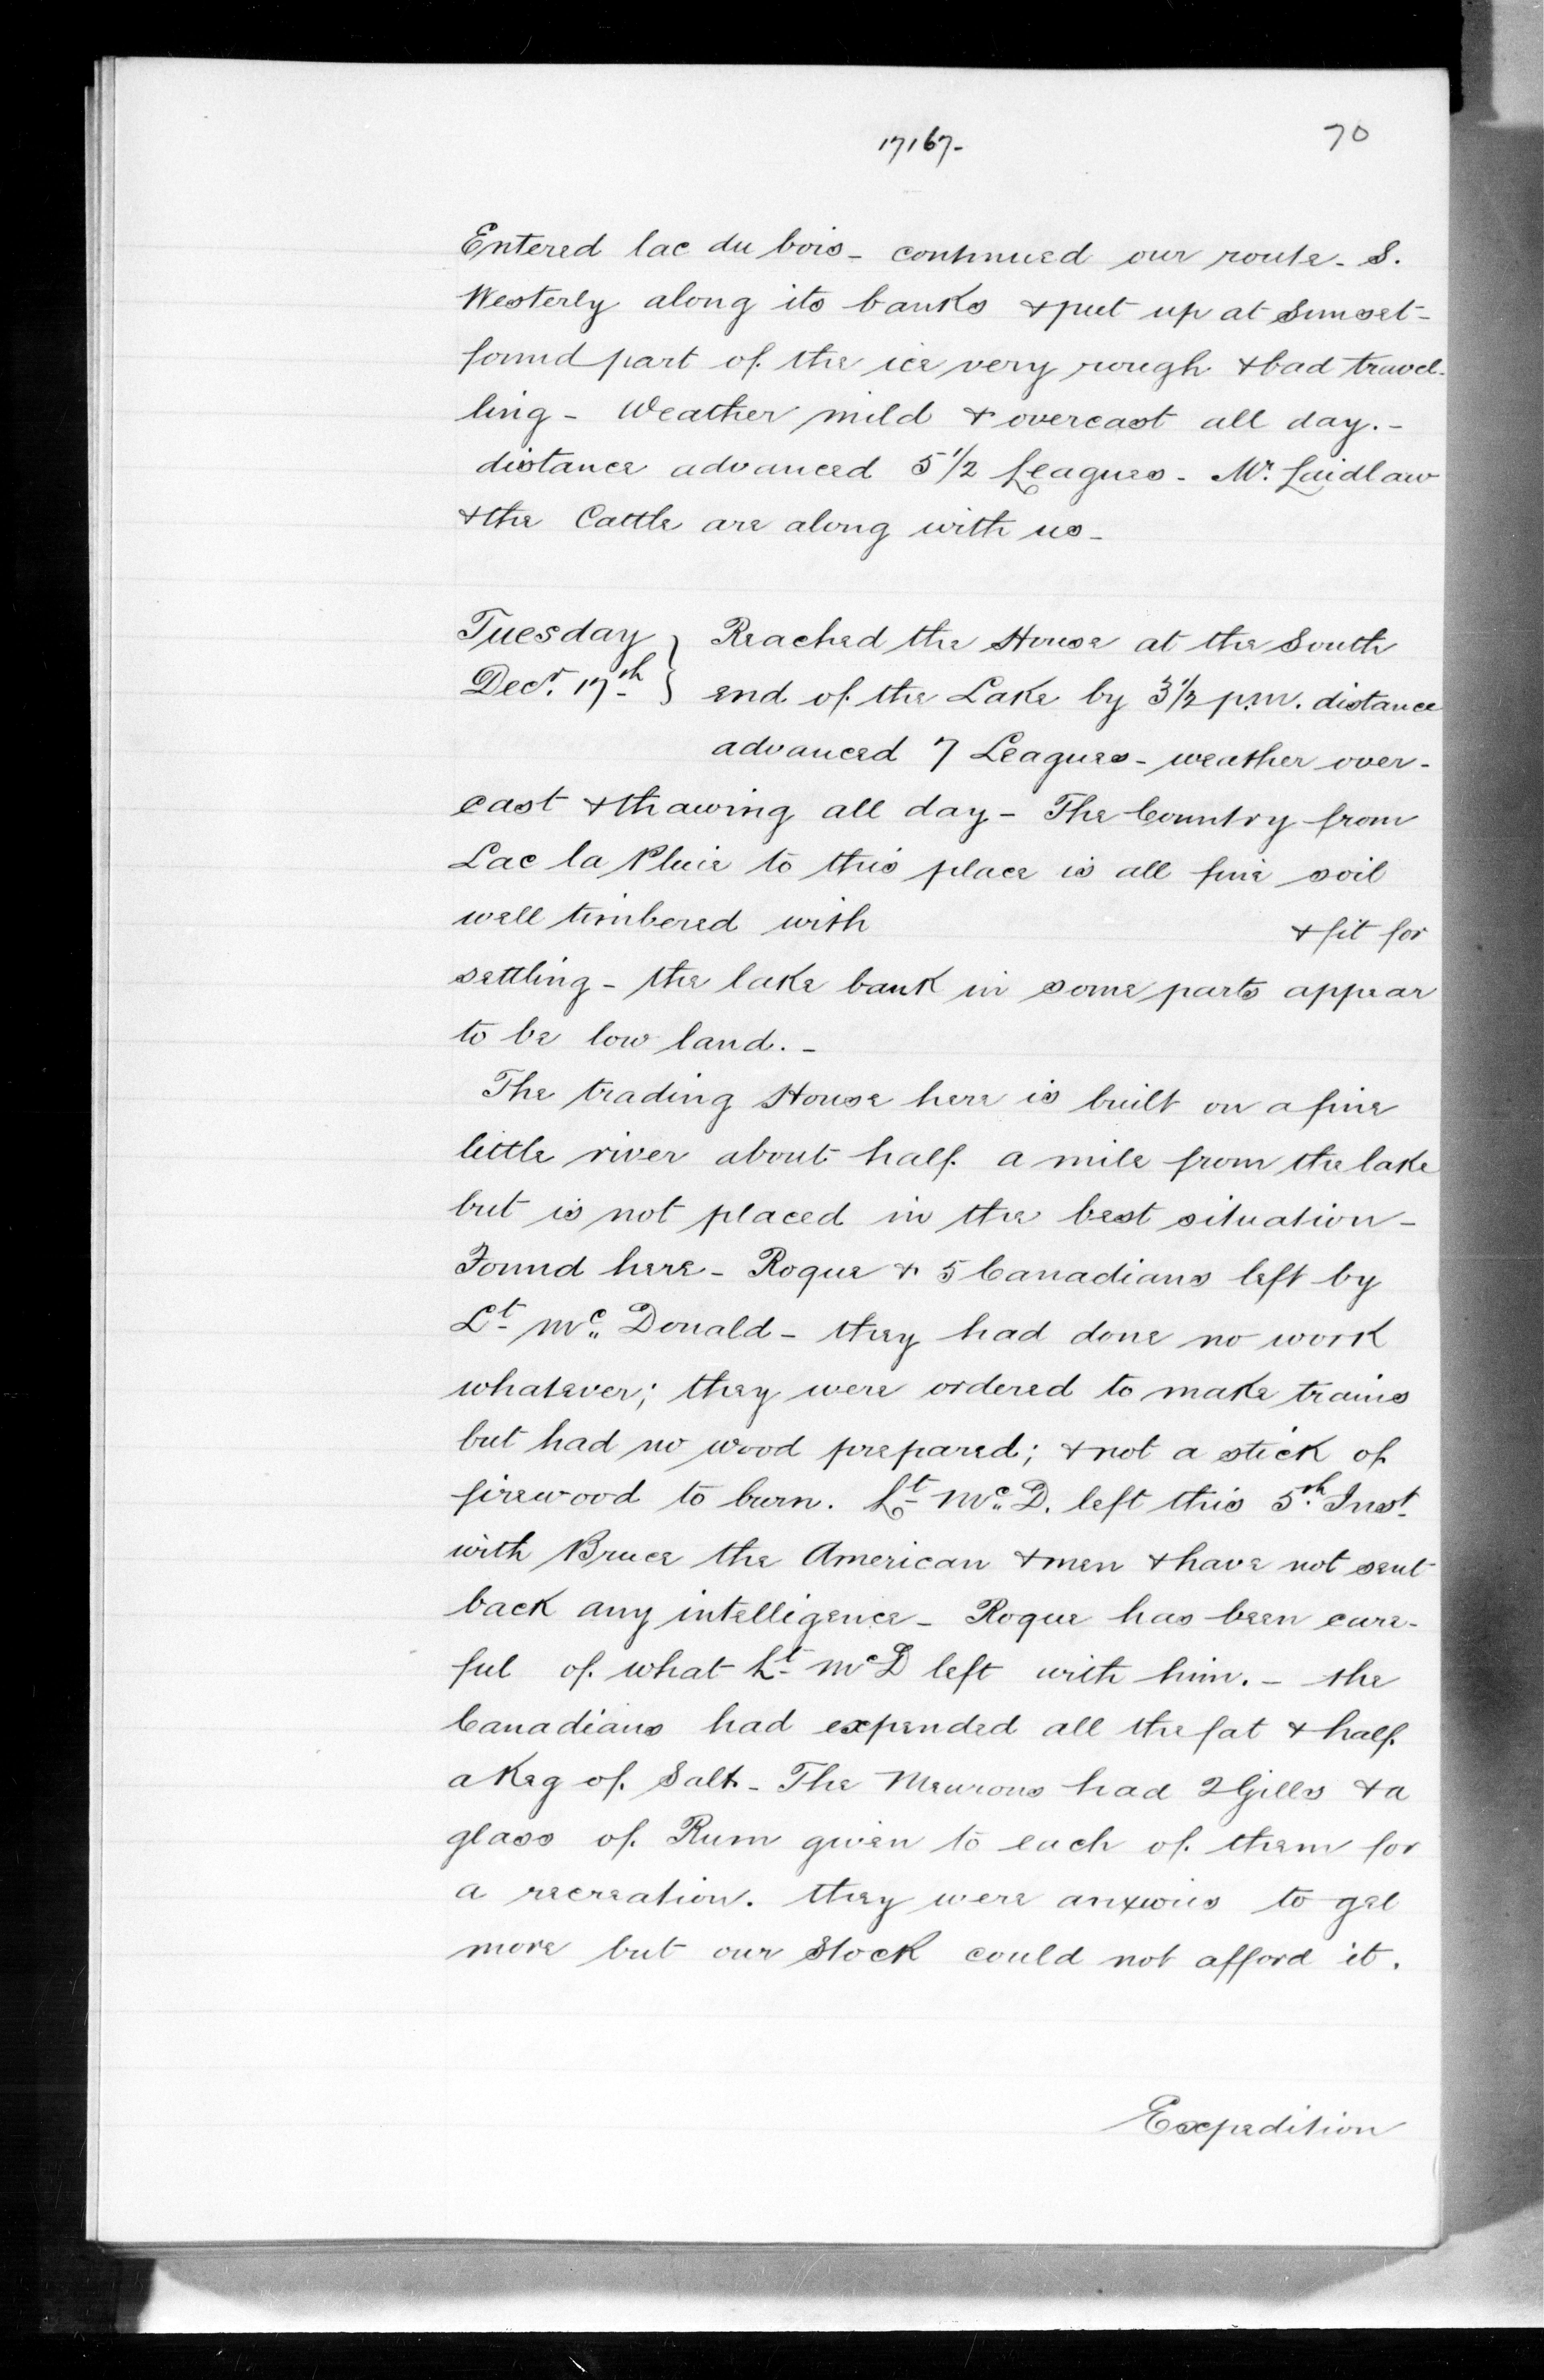 17167-
70
Entered lac du bois - continued our route - S.
Westerly along its banks & put up at Sunset -
found part of the ice very rough & bad travel-
ling - Weather mild & overcast all day. -
distance advanced 5 1/2 Leagues - Mr. Laidlaw
& the Cattle are along with us -
Tuesday } Reached the House at the South
Decr. 17th } end of the Lake by 3 1/2 p.m. distance
advanced 7 Leagues - weather over-
cast & thawing all day - The Country from
Lac la Pluie to this place is all fine soil
well timbered with & fit for
settling - the lake bank in some parts appear
to be low land. -
The trading House here is built on a fine
little river about half a mile from the lake
but is not placed in the best situation -
Found here - Roque & 5 Canadians left by
Lt. Mc. Donald - they had done no work
whatever; they were ordered to make trains
but had no wood prepared; & not a stick of
firewood to burn. Lt. Mc. D. left this 5th. Inst.
with Bruce the American & men & have not sent
back any intelligence - Roque has been care-
ful of what Lt. McD left with him. - the
Canadians had expended all the fat & half
a Keg of Salt - The Meurons had 2 Gills & a
glass of Rum given to each of them for
a recreation. they were anxious to get
more but our Stock could not afford it.
Expedition